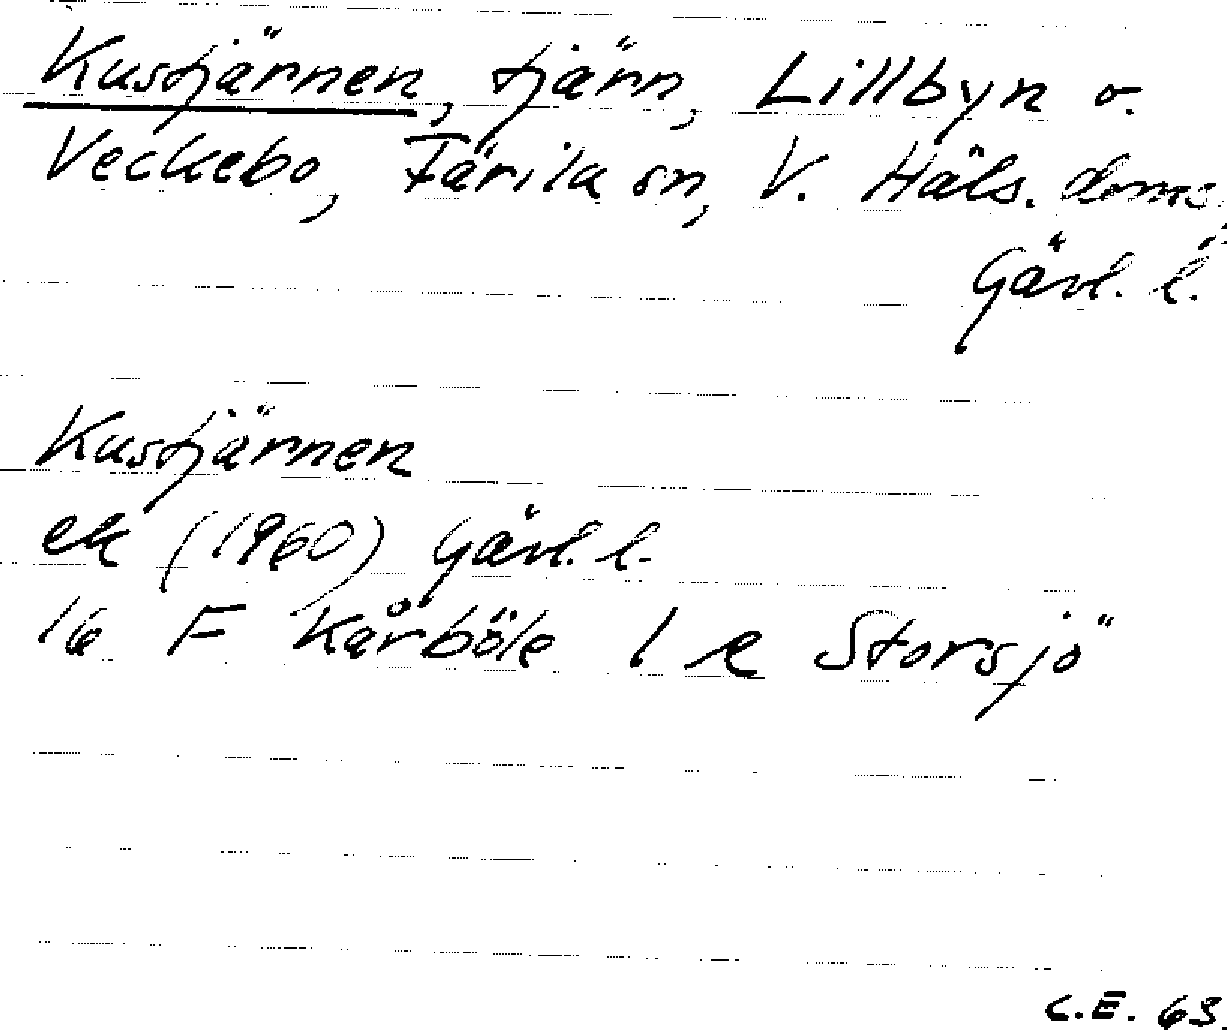 Kustjärnen, tjärn, Lillbyn o.
Veckebo, Färila sn, V. Häls. doms.
Gävl. l.
Kustjärnen
ek (1960) Gävl. l.
16 F Kårböle 1 e Storsjö
C.E. 63.